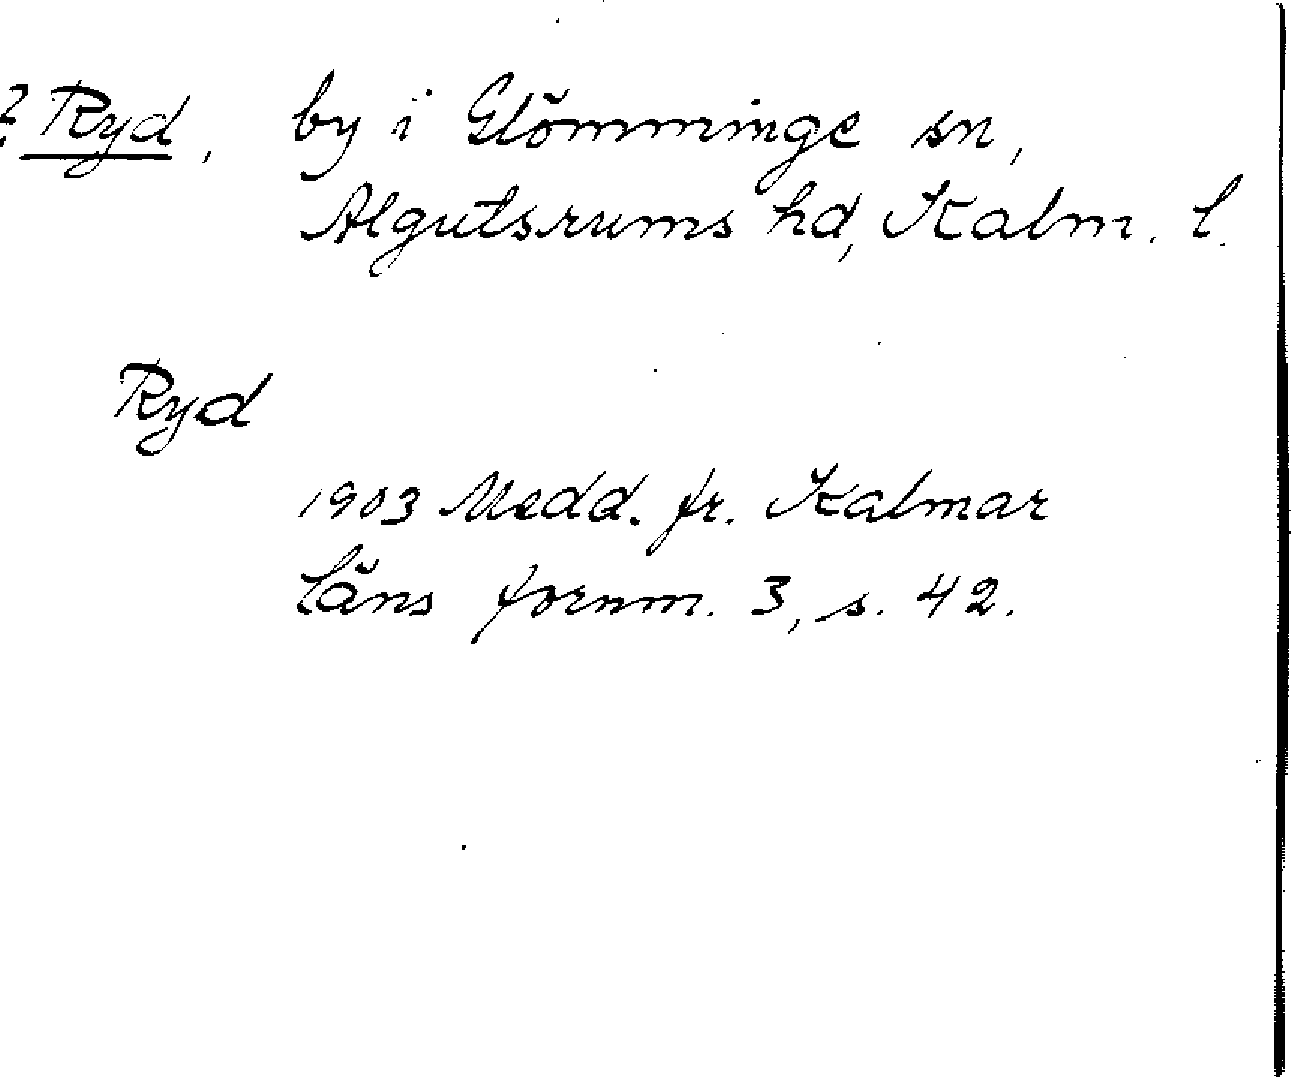 ? Ryd, by i Glömminge sn,
Algutsrums hd, Kalm. l.
Ryd
1903 Medd. fr. Kalmar
läns fornm. 3, s. 42.